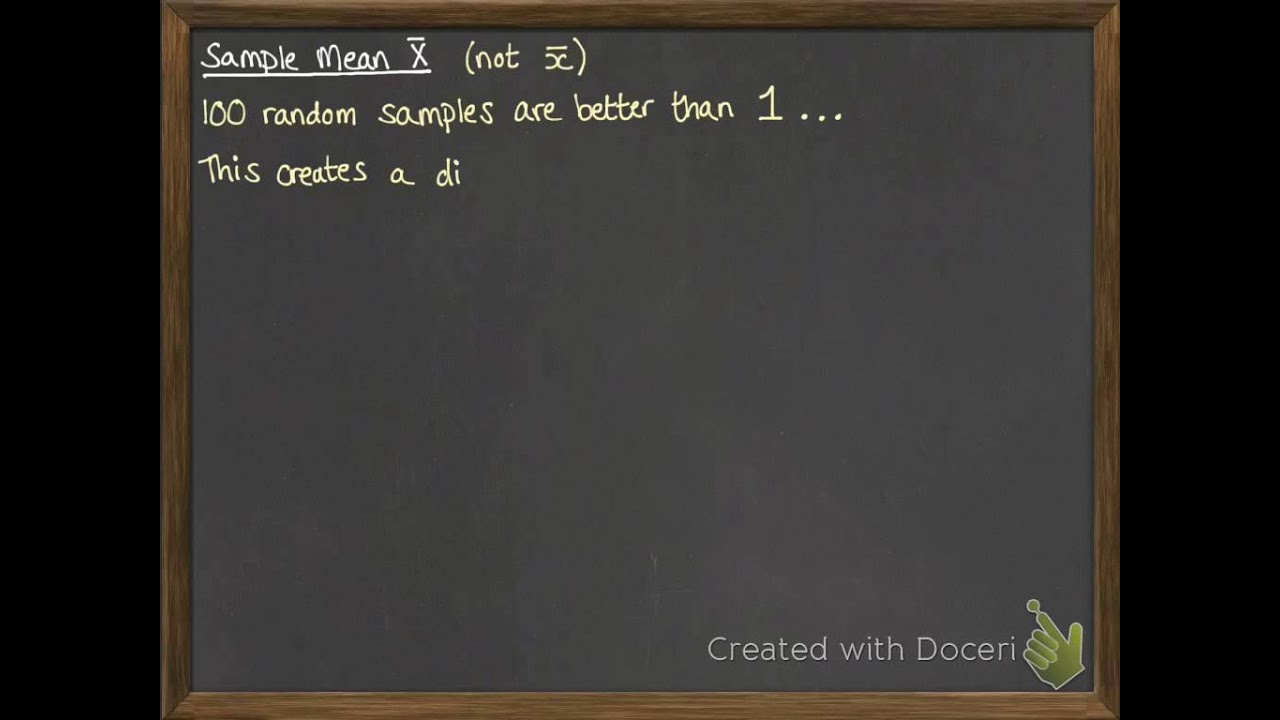 Sample Mean X̄ (not x̄)
100 random samples are better than 1 ...
This creates a di
Created with Doceri